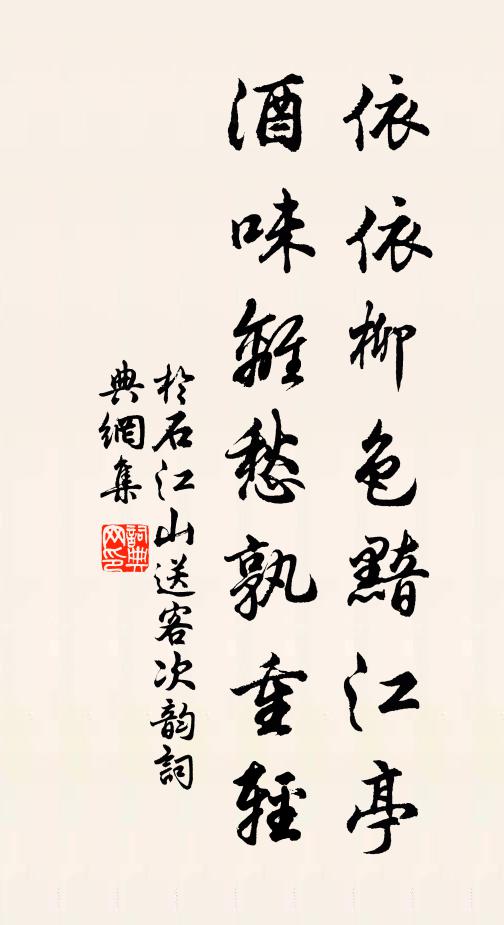 依依柳色黯江亭
酒味離愁孰重輕
於石江山送客次韵詞
典網集
詞典
网印